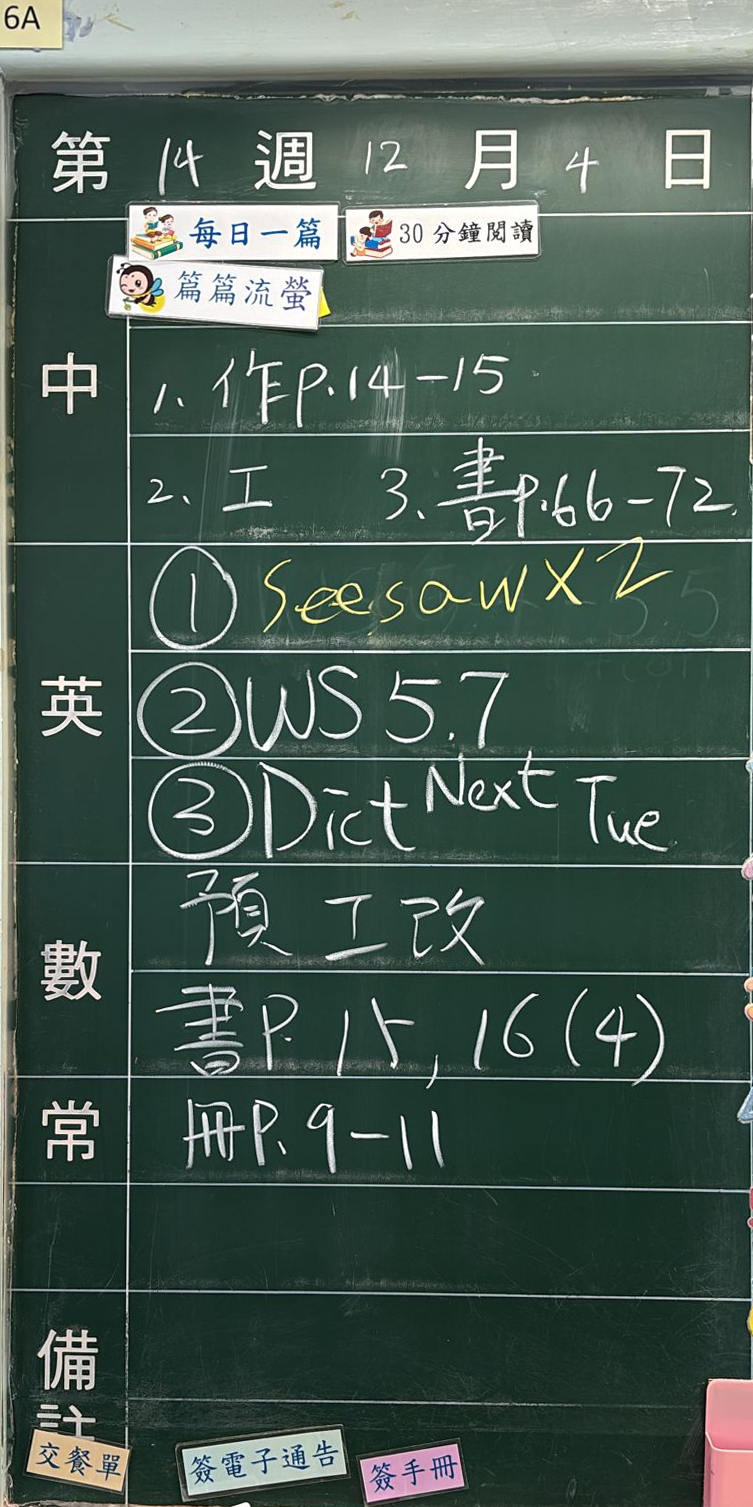 6A
第 14 週 12 月 4 日
每日一篇 30分鐘閱讀
篇篇流螢
中
1. 作P.14-15
2. 工 3. 書P.66-72
英
① Seesaw X2
② WS 5.7
③ Dict Next Tue
數
預 工 改
書P. 15, 16 (4)
常
冊P. 9-11
備註
交餐單 簽電子通告 簽手冊